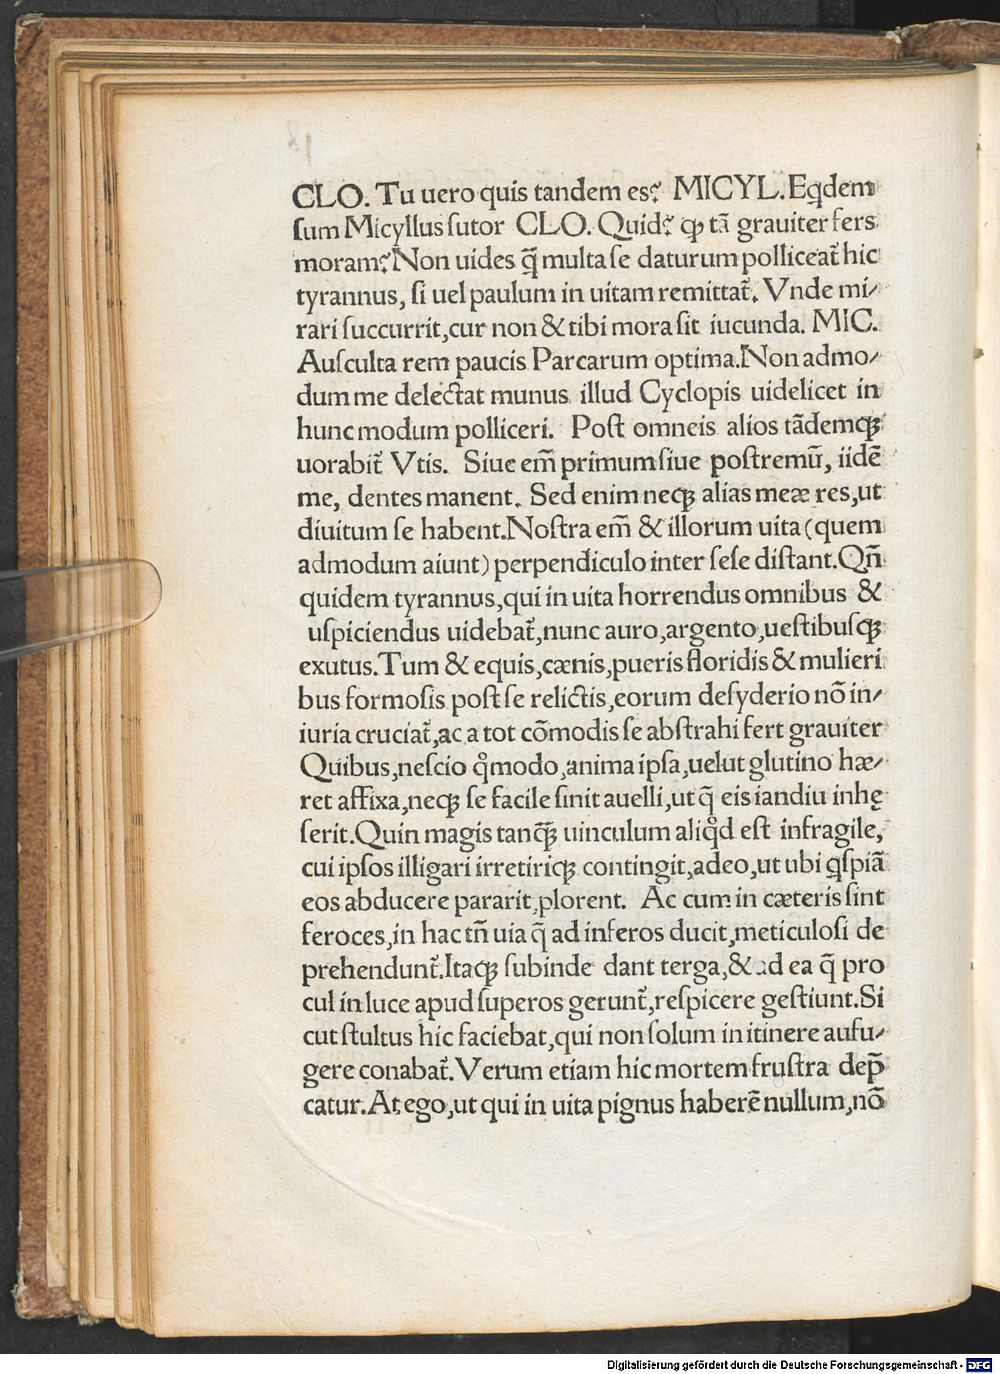 CLO. Tu uero quis tandem es? MICYL. Eqdem
ſum Micyllus ſutor CLO. Quid? ꝙ tã grauiter fers
moram? Non uides q̃ multa ſe daturum polliceat̃ hic
tyrannus, ſi uel paulum in uitam remittat̃. Vnde mi-
rari ſuccurrit, cur non & tibi mora ſit iucunda. MIC.
Auſculta rem paucis Parcarum optima. Non admo-
dum me delectat munus illud Cyclopis uidelicet in
hunc modum polliceri. Poſt omneis alios tãdemqꝫ
uorabit̃ Vtis. Siue em̃ primum ſiue poſtremũ, iidẽ
me, dentes manent. Sed enim neqꝫ alias meæ res, ut
diuitum ſe habent. Noſtra em̃ & illorum uita (quem
admodum aiunt) perpendiculo inter ſeſe diſtant. Qñ
quidem tyrannus, qui in uita horrendus omnibus &
uſpiciendus uidebat̃, nunc auro, argento, ueſtibuſqꝫ
exutus. Tum & equis, cænis, pueris floridis & mulieri
bus formoſis poſt ſe relictis, eorum deſyderio nõ in-
iuria cruciat̃, ac a tot cõmodis ſe abſtrahi fert grauiter
Quibus, neſcio qͦmodo, anima ipſa, uelut glutino hæ-
ret affixa, neqꝫ ſe facile ſinit auelli, ut q̃ eis iandiu inhę
ſerit. Quin magis tanqꝫ̃ uinculum aliqͥd eſt infragile,
cui ipſos illigari irretiriqꝫ contingit, adeo, ut ubi qſpiã
eos abducere pararit, plorent. Ac cum in cæteris ſint
feroces, in hac tñ uia q̃ ad inferos ducit, meticuloſi de
prehendunt̃. Itaqꝫ ſubinde dant terga, & ad ea q̃ pro
cul in luce apud ſuperos gerunt̃, reſpicere geſtiunt. Si
cut ſtultus hic faciebat, qui non ſolum in itinere aufu-
gere conabat̃. Verum etiam hic mortem fruſtra dep̃
catur. At ego, ut qui in uita pignus haberẽ nullum, nõ
Digitalisierung gefördert durch die Deutsche Forschungsgemeinschaft - DFG